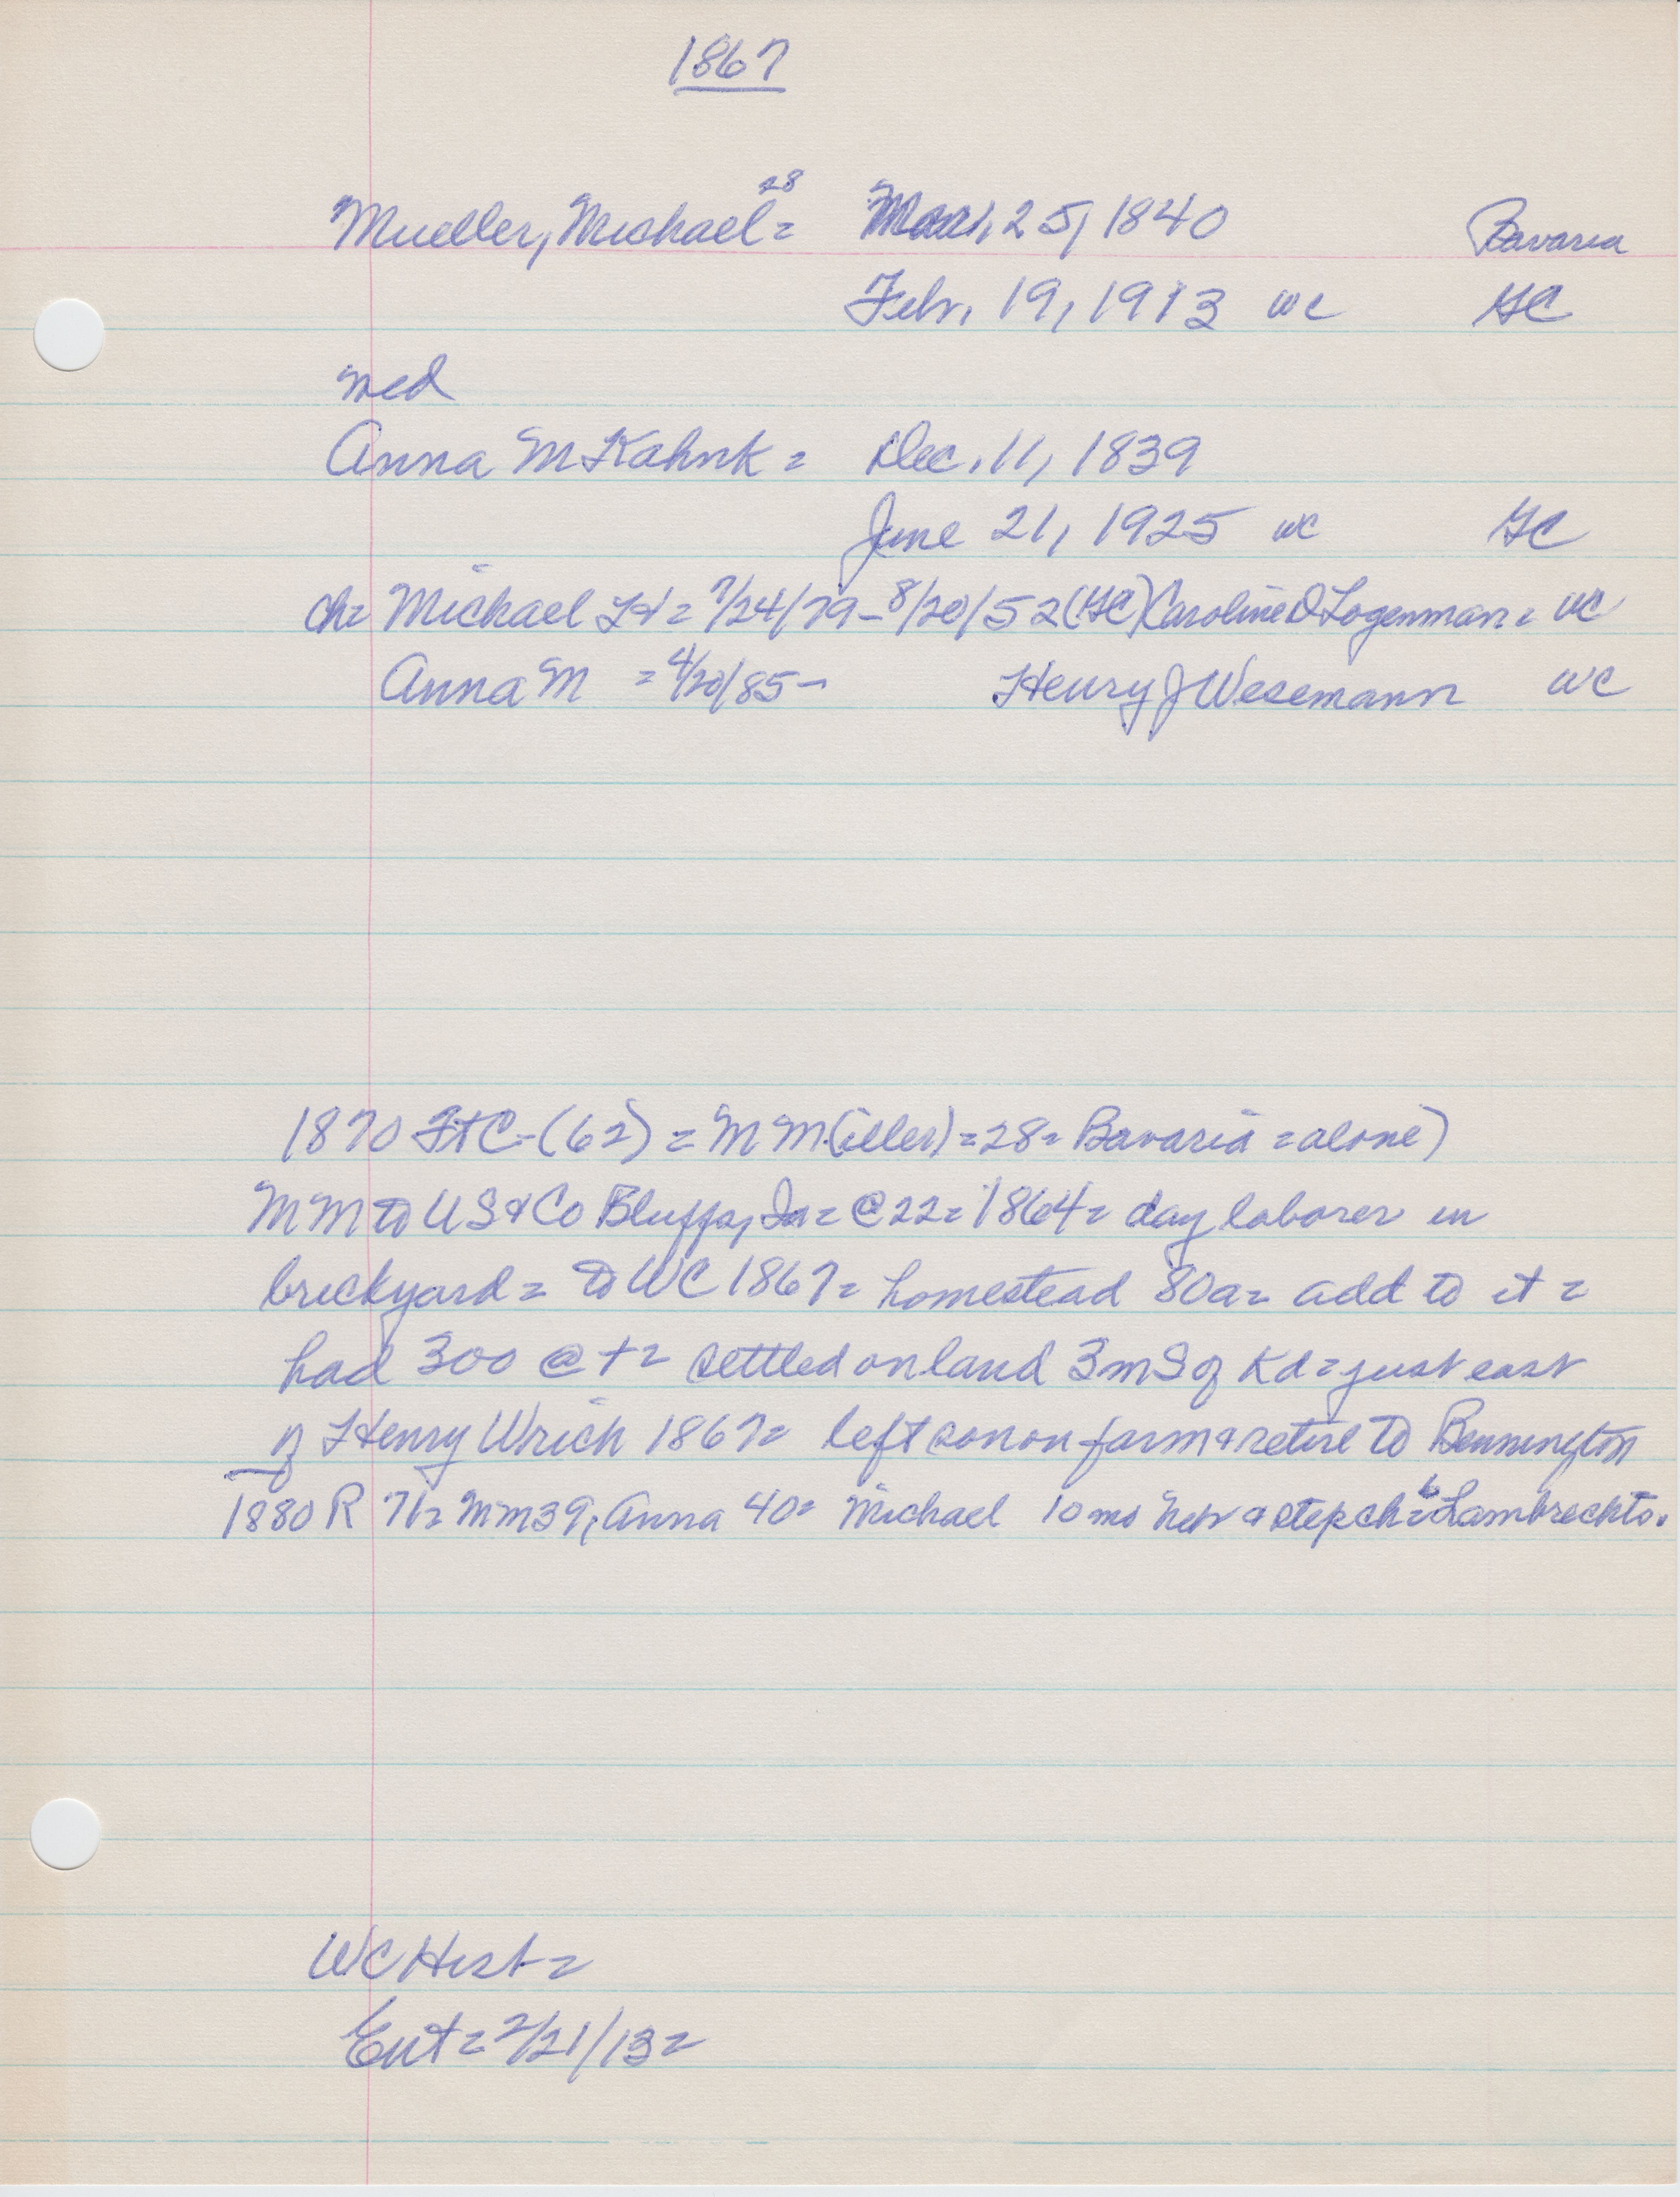 1867
28
Mueller, Michael = Mar. 25, 1840 Bavaria
Febr. 19, 1913 WC GC
med
Anna M Kahnk = Dec. 11, 1839
June 21, 1925 WC GC
ch= Michael H = 7/24/79 - 8/20/52 (GC) Caroline D Logenman = WC
Anna M = 4/20/85 - Henry J Wesemann WC
1870 Ft C - (62) = M M(iller) = 28 = Bavaria = alone)
MM to US & Co Bluffs, Ia = @ 22 = 1864 = day laborer in
brickyard = to WC 1867 = homestead 80a = add to it =
had 300 @ + = settled on land 3m S of Kd = just east
of Henry Wrich 1867 = left son on farm & retire to Bennington
1880 R 71 = MM 39, Anna 40 = Michael 10 ms Nebr & 6 step ch = Lambrechts.
WC Hist =
Ent = 2/21/13 =